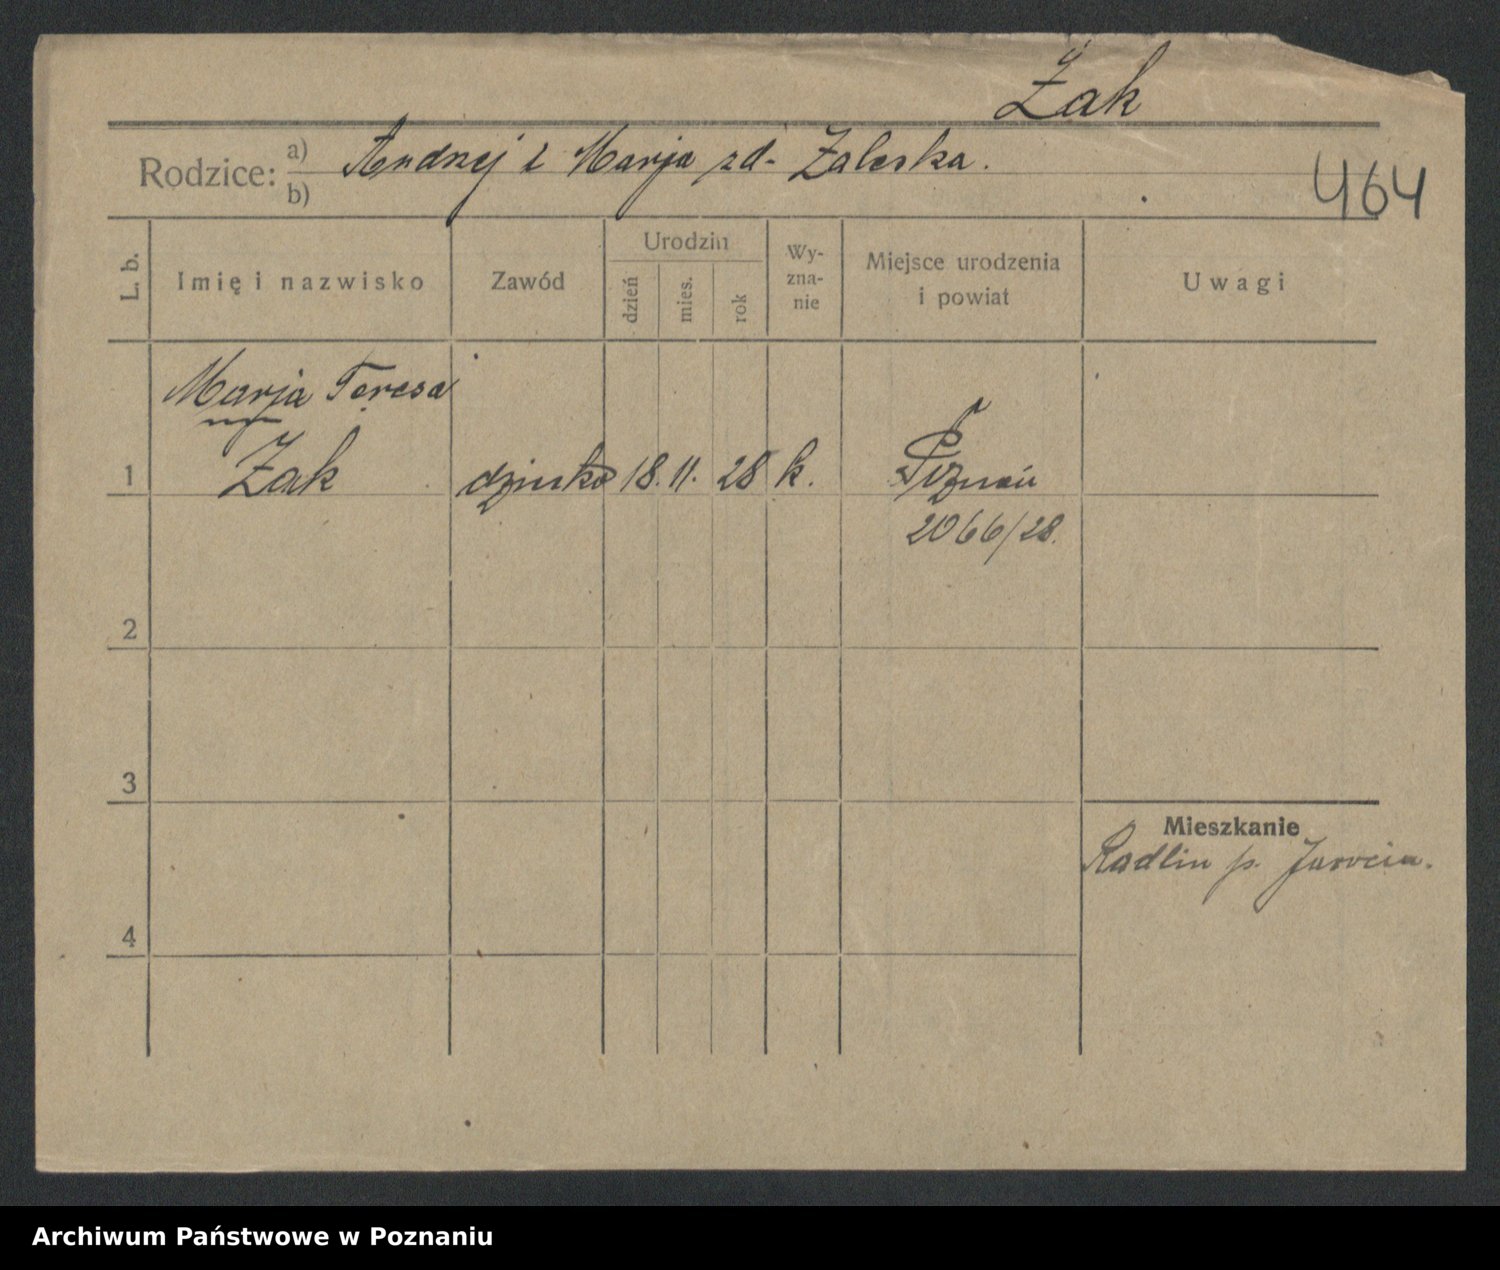 Żak
Rodzice: a) Andrzej i Marja zd. Zaleska.
b)
464
L. b. Imię i nazwisko Zawód Urodzin dzień mies. rok Wy-zna-nie Miejsce urodzenia i powiat Uwagi
Marja Teresa
1 Żak dziecko 18. 11. 28 k. Poznań
2066/28.
2
3
Mieszkanie
Radlin p. Jarocin.
4
Archiwum Państwowe w Poznaniu